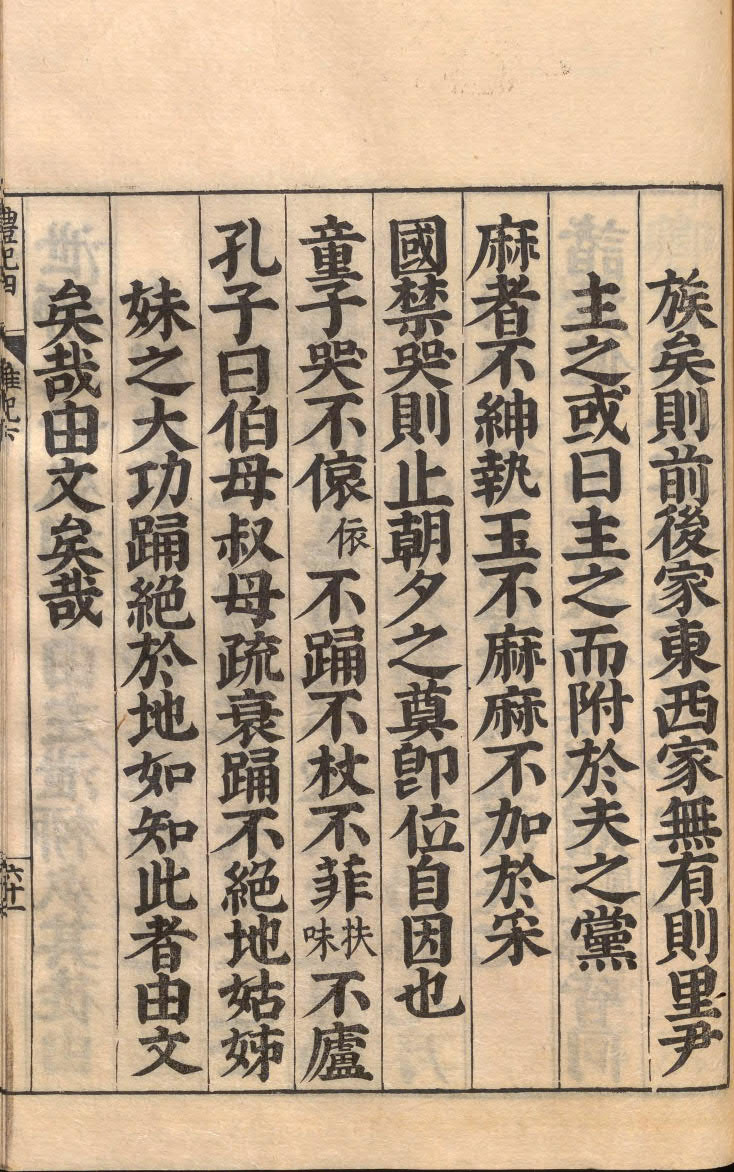 族矣則前後家東西家無有則里尹
主之或曰主之而附於夫之黨
麻者不紳執玉不麻麻不加於采
國禁哭則止朝夕之奠卽位自因也
童子哭不偯依不踊不杖不菲扶味不廬
孔子曰伯母叔母疏衰踊不絕地姑姊
妹之大功踊絕於地如知此者由文
矣哉由文矣哉
禮記四
雜記六
六十一